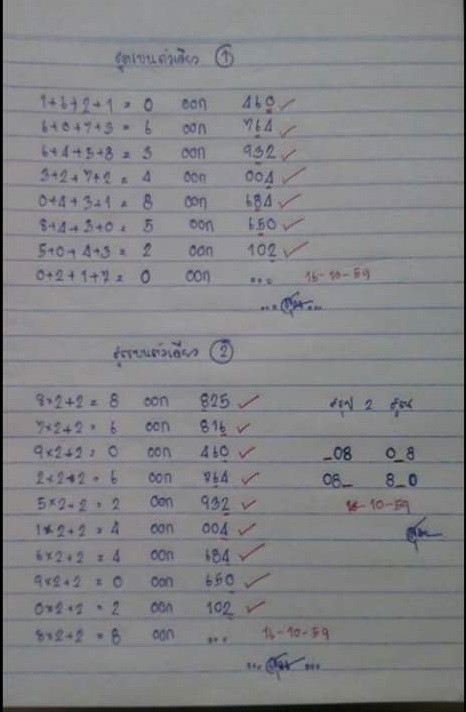 สูตรบนตัวเดียว ①
1+6+2+1 = 0 ออก 460 ✓
6+0+7+3 = 6 ออก 764 ✓
6+4+5+8 = 3 ออก 932 ✓
3+2+7+2 = 4 ออก 004 ✓
0+4+3+1 = 8 ออก 684 ✓
8+4+3+0 = 5 ออก 650 ✓
5+0+4+3 = 2 ออก 102 ✓
0+2+1+7 = 0 ออก ... 16-10-59
สูตรบนตัวเดียว ②
8×2+2 = 8 ออก 825 ✓
7×2+2 = 6 ออก 816 ✓
สรุป 2 สูตร
9×2+2 = 0 ออก 460 ✓
_08 0_8
2×2+2 = 6 ออก 764 ✓
08_ 8_0
5×2+2 = 2 ออก 932 ✓
16-10-59
1×2+2 = 4 ออก 004 ✓
6×2+2 = 4 ออก 684 ✓
9×2+2 = 0 ออก 650 ✓
0×2+2 = 2 ออก 102 ✓
8×2+2 = 8 ออก ... 16-10-59